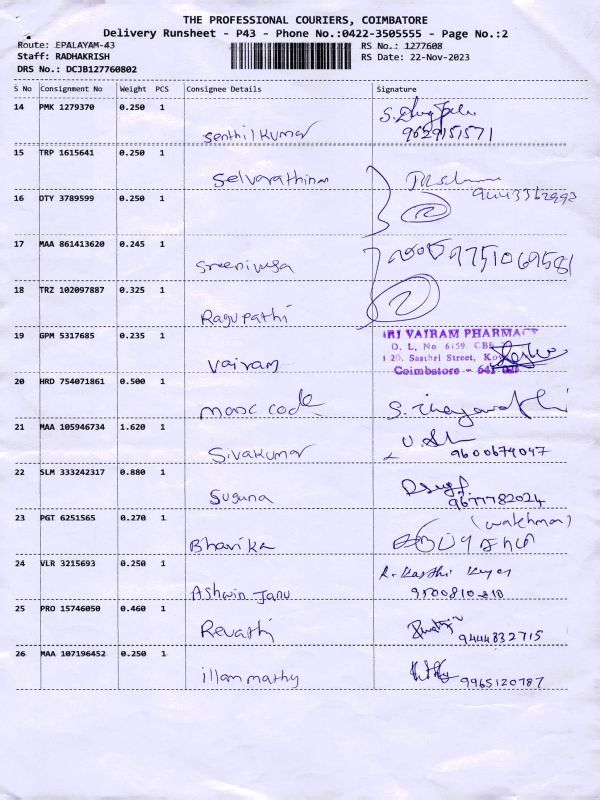 THE PROFESSIONAL COURIERS, COIMBATORE
Delivery Runsheet - P43 - Phone No.:0422-3505555 - Page No.:2
Route: EPALAYAM-43 RS No.: 1277608
Staff: RADHAKRISH RS Date: 22-Nov-2023
DRS No.: DCJB127760802
S No Consignment No Weight PCS Consignee Details Signature
14 PMK 1279370 0.250 1
Senthilkumar 9629151571
15 TRP 1615641 0.250 1
Selvarathinam
16 DTY 3789599 0.250 1
17 MAA 861413620 0.245 1
Sreenivasa 9751069581
18 TRZ 102097887 0.325 1
Ragupathi
19 GPM 5317685 0.235 1 SRI VAIRAM PHARMACY
D. L. No 6159 CBE
Vairam 20, Sasthri Street,
Coimbatore - 641
20 HRD 754071861 0.500 1
marc code
21 MAA 105946734 1.620 1
Sivakumar 9600674047
22 SLM 333242317 0.880 1
Suguna 9677782024
23 PGT 6251565 0.270 1 (watchman)
Bhavika
24 VLR 3215693 0.250 1
Ashwin Janu 9500810210
25 PRO 15746050 0.460 1
Revathi 9444832715
26 MAA 107196452 0.250 1
illammathy 9965120787